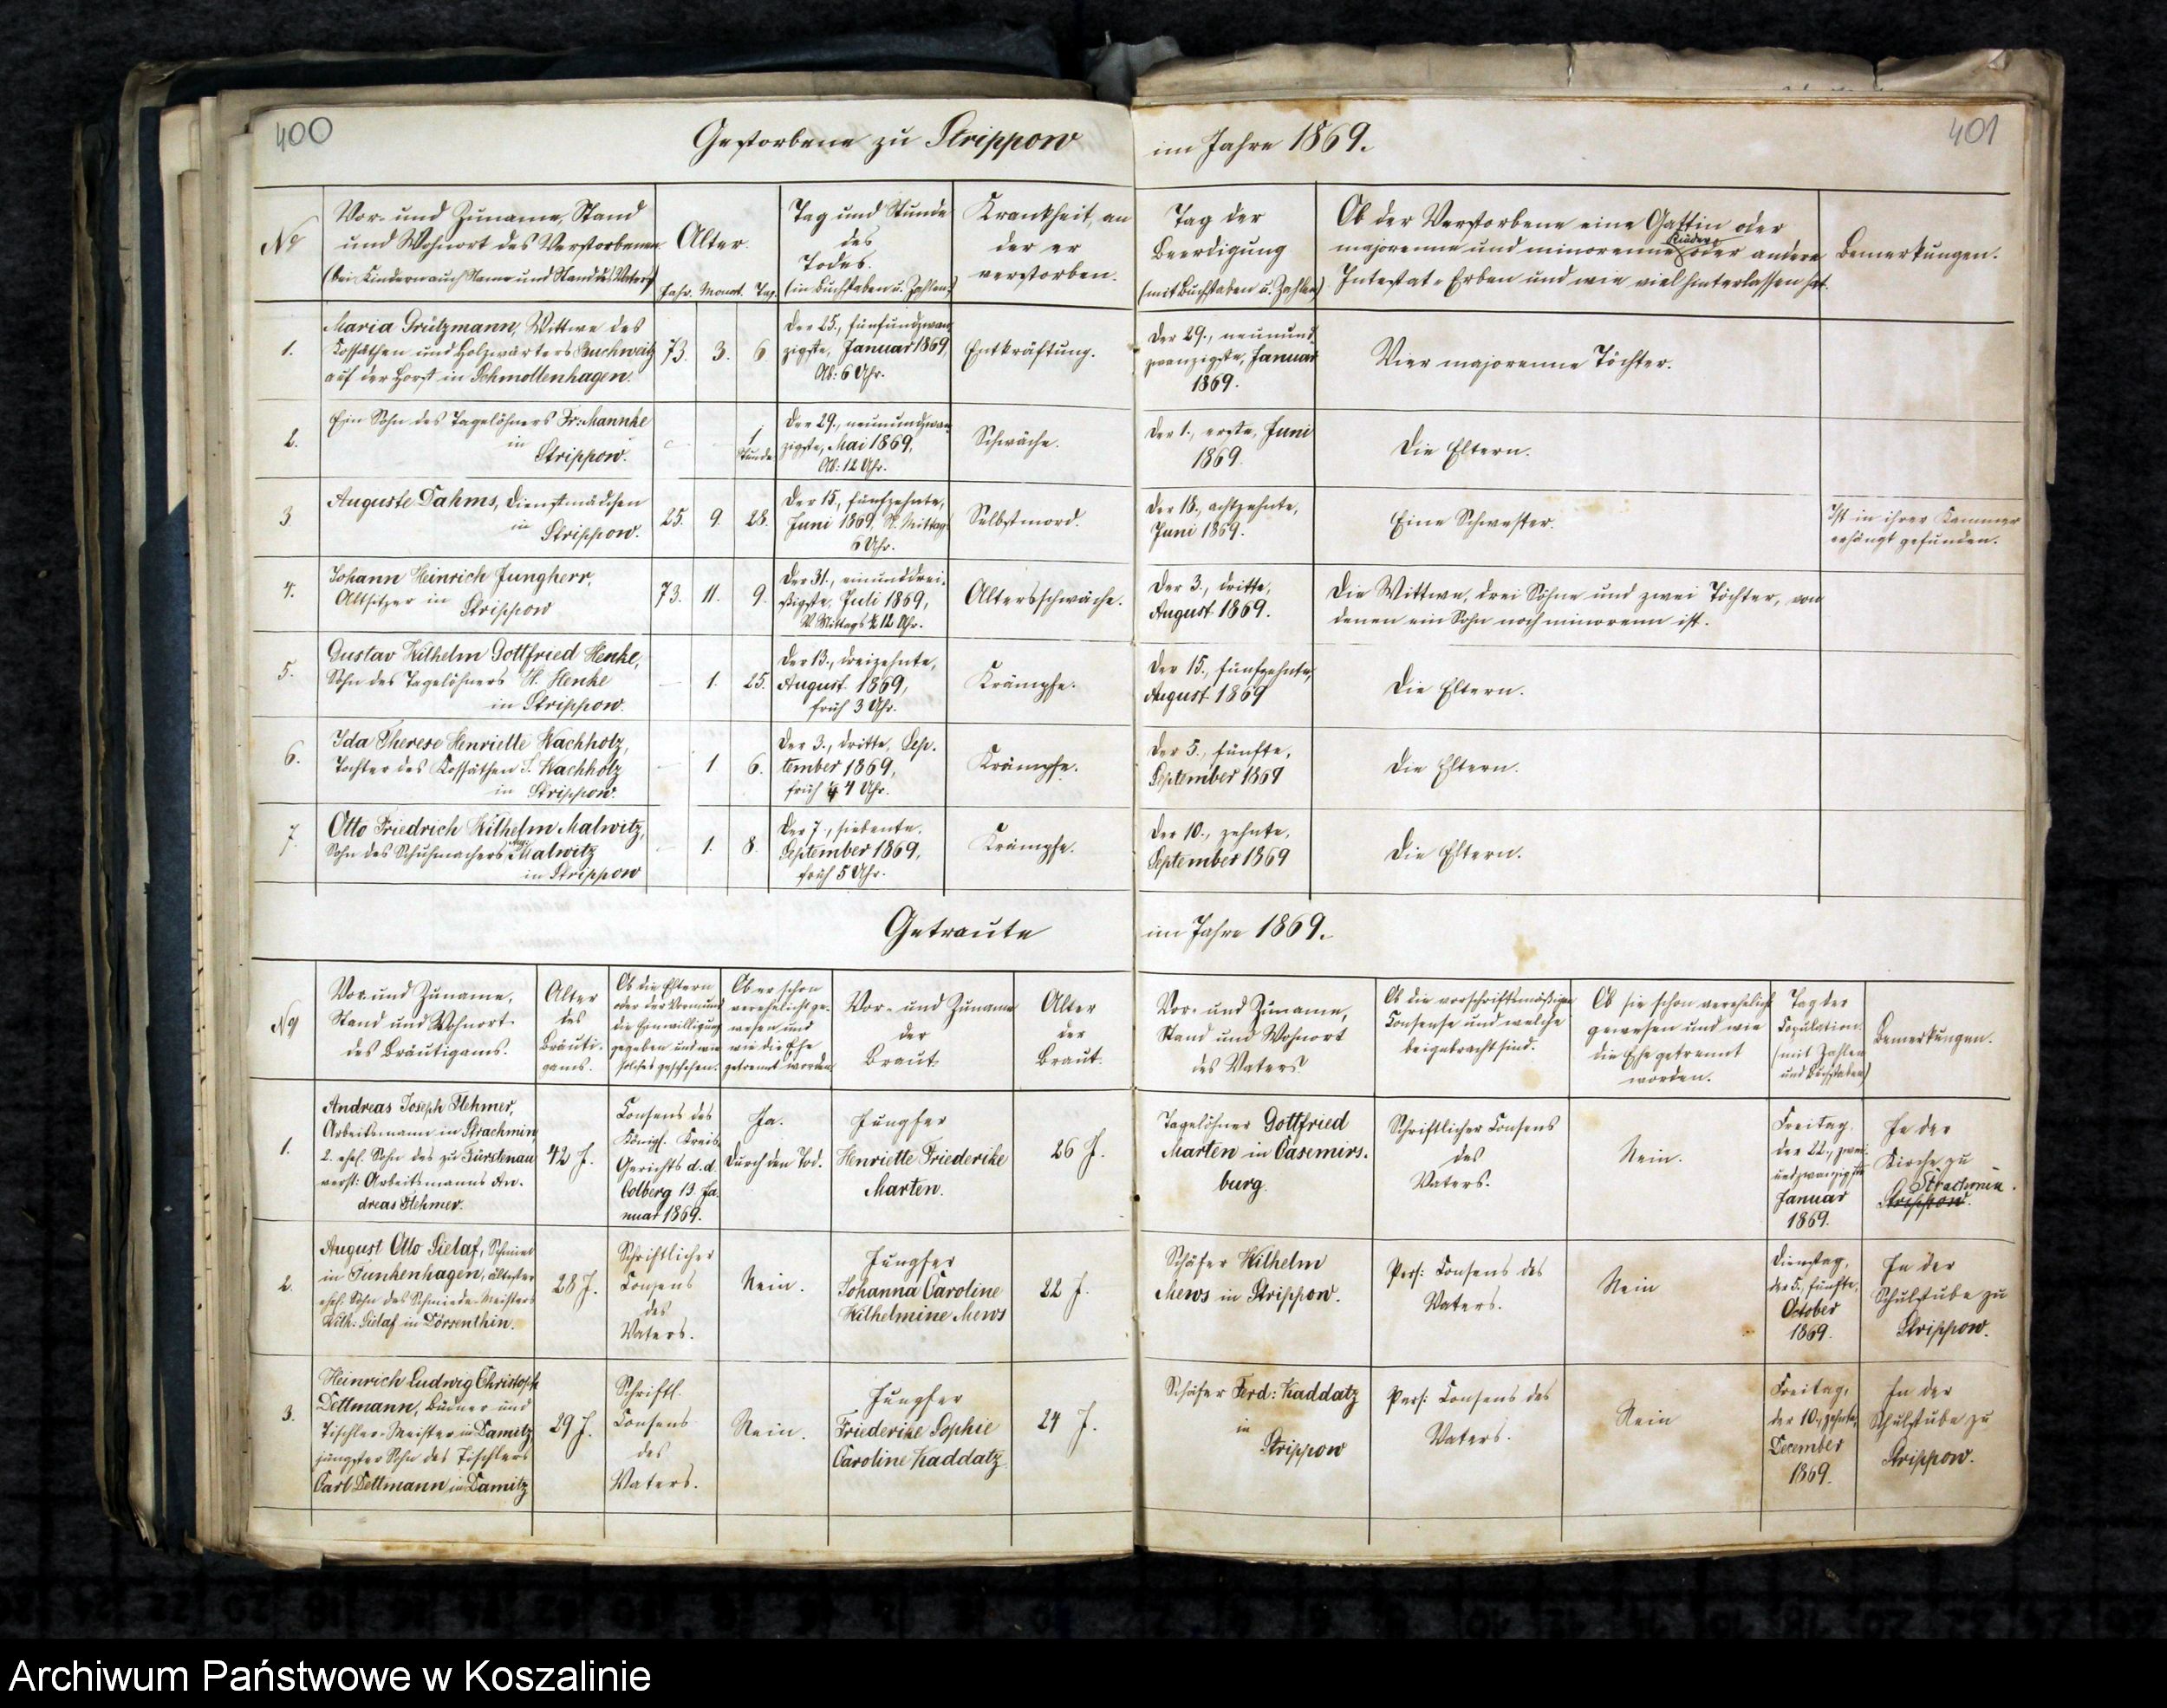 400
Gestorbene zu Strippow
im Jahre 1869.
401
No
Vor- und Zuname, Stand
und Wohnort des Verstorbenen
(bei Kindern auch Name und Stand des Vaters)
Alter.
Jahr. Monat. Tag.
Tag und Stunde
des
Todes.
(in Buchstaben u. Zahlen)
Krankheit, an
der er
verstorben.
Tag der
Beerdigung
(mit Buchstaben u. Zahlen)
Ob der Verstorbene eine Gattin oder
majorenne und minorenne Kinder oder andere
Intestat-Erben und wie viel hinterlassen hat.
Bemerkungen.
1.
Maria Grützmann, Wittwe des
Kossäthen und Holzwärters Buchweitz
auf der Horst in Schmollenhagen.
73. 3. 6
Der 25., fünfundzwan
zigste, Januar 1869,
Ab: 6 Uhr.
Entkräftung.
Der 29., neunund
zwanzigste, Januar
1869.
Vier majorenne Töchter.
2.
Ein Sohn des Tagelöhners Fr: Mannke
in
Strippow.
1
Stunde
Der 29., neunundzwan
zigste, Mai 1869,
Ab: 12 Uhr.
Schwäche.
Der 1., erste, Juni
1869.
Die Eltern.
3.
Auguste Dahms, Dienstmädchen
in
Strippow.
25. 9. 28.
Der 15., fünfzehnte,
Juni 1869, N. Mittags
6 Uhr.
Selbstmord.
Der 18., achtzehnte,
Juni 1869.
Eine Schwester.
Ist in ihrer Kammer
erhängt gefunden.
4.
Johann Heinrich Jungherr,
Altsitzer in
Strippow
73. 11. 9.
Der 31., einunddrei-
ßigste, Juli 1869,
V. Mittags ½ 12 Uhr.
Altersschwäche.
Der 3., dritte,
August 1869.
Die Wittwe, drei Söhne und zwei Töchter, von
denen ein Sohn noch minorenn ist.
5.
Gustav Wilhelm Gottfried Henke,
Sohn des Tagelöhners W. Henke
in Strippow.
1. 25.
Der 13., dreizehnte,
August 1869,
früh 3 Uhr.
Krämpfe.
Der 15., fünfzehnte,
August 1869
Die Eltern.
6.
Ida Therese Henriette Wachholz,
Tochter des Kossäthen Wachholz
in Strippow.
1. 6.
Der 3., dritte, Sep-
tember 1869,
früh 4 Uhr.
Krämpfe.
Der 5., fünfte,
September 1869
Die Eltern.
7.
Otto Friedrich Wilhelm Malwitz,
Sohn des Schuhmachers Malwitz
in Strippow
1. 8.
Der 7., siebente,
September 1869,
früh 5 Uhr.
Krämpfe.
Der 10., zehnte,
September 1869
Die Eltern.
Getraute
im Jahre 1869.
No
Vor- und Zuname,
Stand und Wohnort
des Bräutigams.
Alter
des
Bräuti-
gams.
Ob die Eltern
oder der Vormund
die Einwilligung
gegeben und wie
solches geschehen.
Ob er schon
verehelicht ge-
wesen und
wie die Ehe
getrennt worden
Vor- und Zuname
der
Braut.
Alter
der
Braut.
Vor- und Zuname,
Stand und Wohnort
des Vaters
Ob die vorschriftsmäßigen
Consense und welche
beigebracht sind.
Ob sie schon verehelicht
gewesen und wie
die Ehe getrennt
worden.
Tag der
Copulation.
(mit Zahlen
und Buchstaben)
Bemerkungen.
1.
Andreas Joseph Flehmer,
Arbeitsmann in Strachmin,
2. ehel. Sohn des zu Fürstenau
verst: Arbeitsmanns An-
dreas Flehmer.
42 J.
Consens des
Königl. Kreis
Gerichts d. d.
Colberg 13. Ja-
nuar 1869.
Ja.
Durch den Tod.
Jungfer
Henriette Friederike
Marten.
26 J.
Tagelöhner Gottfried
Marten in Casemirs-
burg.
Schriftlicher Consens
des
Vaters.
Nein.
Freitag,
der 22., zwei-
undzwanzigste
Januar
1869.
In der
Kirche zu
Strachmin.
Strippow.
2.
August Otto Sielaf, Schmied
in Funkenhagen, ältester
ehel. Sohn des Schmiede-Meisters
Wilh: Sielaf in Dörsenthin.
28 J.
Schriftlicher
Consens
des
Vaters.
Nein.
Jungfer
Johanna Caroline
Wilhelmine Mews
22 J.
Schäfer Wilhelm
Mews in Strippow.
Pers: Consens des
Vaters.
Nein
Dienstag,
der 5., fünfte,
October
1869.
In der
Schulstube zu
Strippow.
3.
Heinrich Ludwig Christoph
Dettmann, Büdner und
Tischler-Meister in Damitz
jüngster Sohn des Tischlers
Carl Dettmann in Damitz
29 J.
Schriftl.
Consens
des
Vaters.
Nein.
Jungfer
Friederike Sophie
Caroline Kaddatz
24 J.
Schäfer Ferd: Kaddatz
in
Strippow
Pers: Consens des
Vaters.
Nein
Freitag,
der 10., zehnte,
December
1869.
In der
Schulstube zu
Strippow.
Archiwum Państwowe w Koszalinie